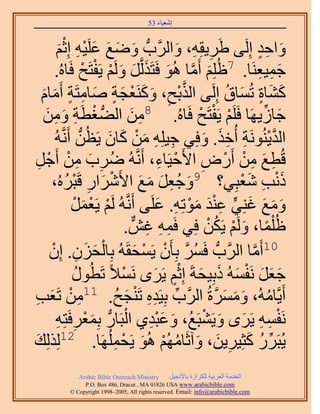 إشعياء 53
وَاحِدٍ إِلَى طَرِيقِهِ، وَالرَّبُّ وَضَعَ عَلَيْهِ إِثْمَ
جَمِيعِنَا. 7ظُلِمَ أَمَّا هُوَ فَتَذَلَّلَ وَلَمْ يَفْتَحْ فَاهُ.
كَشَاةٍ تُسَاقُ إِلَى الذَّبْحِ، وَكَنَعْجَةٍ صَامِتَةٍ أَمَامَ
جَازِّيهَا فَلَمْ يَفْتَحْ فَاهُ. 8مِنَ الضُّغْطَةِ وَمِنَ
الدَّيْنُونَةِ أُخِذَ. وَفِي جِيلِهِ مَنْ كَانَ يَظُنُّ أَنَّهُ
قُطِعَ مِنْ أَرْضِ الأَحْيَاءِ، أَنَّهُ ضُرِبَ مِنْ أَجْلِ
ذَنْبِ شَعْبِي؟ 9وَجُعِلَ مَعَ الأَشْرَارِ قَبْرُهُ،
وَمَعَ غَنِيٍّ عِنْدَ مَوْتِهِ. عَلَى أَنَّهُ لَمْ يَعْمَلْ
ظُلْمًا، وَلَمْ يَكُنْ فِي فَمِهِ غِشٌّ.
10أَمَّا الرَّبُّ فَسُرَّ بِأَنْ يَسْحَقَهُ بِالْحَزَنِ. إِنْ
جَعَلَ نَفْسَهُ ذَبِيحَةَ إِثْمٍ يَرَى نَسْلاً تَطُولُ
أَيَّامُهُ، وَمَسَرَّةُ الرَّبِّ بِيَدِهِ تَنْجَحُ. 11مِنْ تَعَبِ
نَفْسِهِ يَرَى وَيَشْبَعُ، وَعَبْدِي الْبَارُّ بِمَعْرِفَتِهِ
يُبَرِّرُ كَثِيرِينَ، وَآثَامُهُمْ هُوَ يَحْمِلُهَا. 12لِذلِكَ
Arabic Bible Outreach Ministry الخدمة العربية للكرازة بالإنجيل
P.O. Box 486, Dracut , MA 01826 USA www.arabicbible.com
© Copyright 1998-2005, All rights reserved. Email: info@arabicbible.com